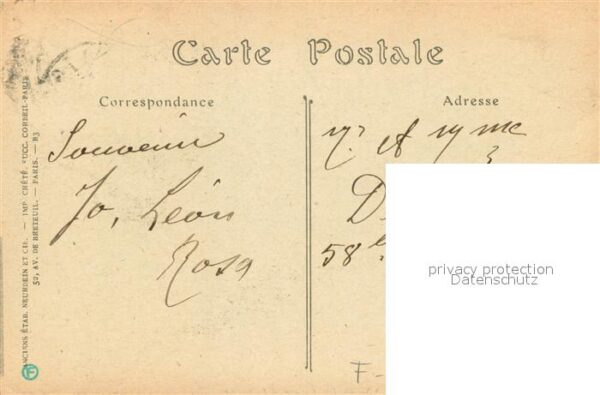 Carte Postale
Correspondance
Adresse
Souvenir
Jo, Léon
Rosa
Mr et Mme
D
58
privacy protection
Datenschutz
F-
ANCIENS ÉTAB. NEURDEIN ET CIE. — IMP. CRÉTÉ. SUCC. CORBEIL-PARIS
50, AV. DE BRETEUIL. — PARIS. — B3